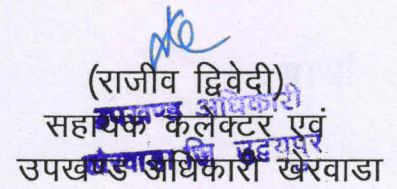 (राजीव द्विवेदी)
उपखण्ड अधिकारी
सहायक कलेक्टर एवं
खेरवाडा जि. उदयपुर
उपखण्ड अधिकारी खेरवाडा